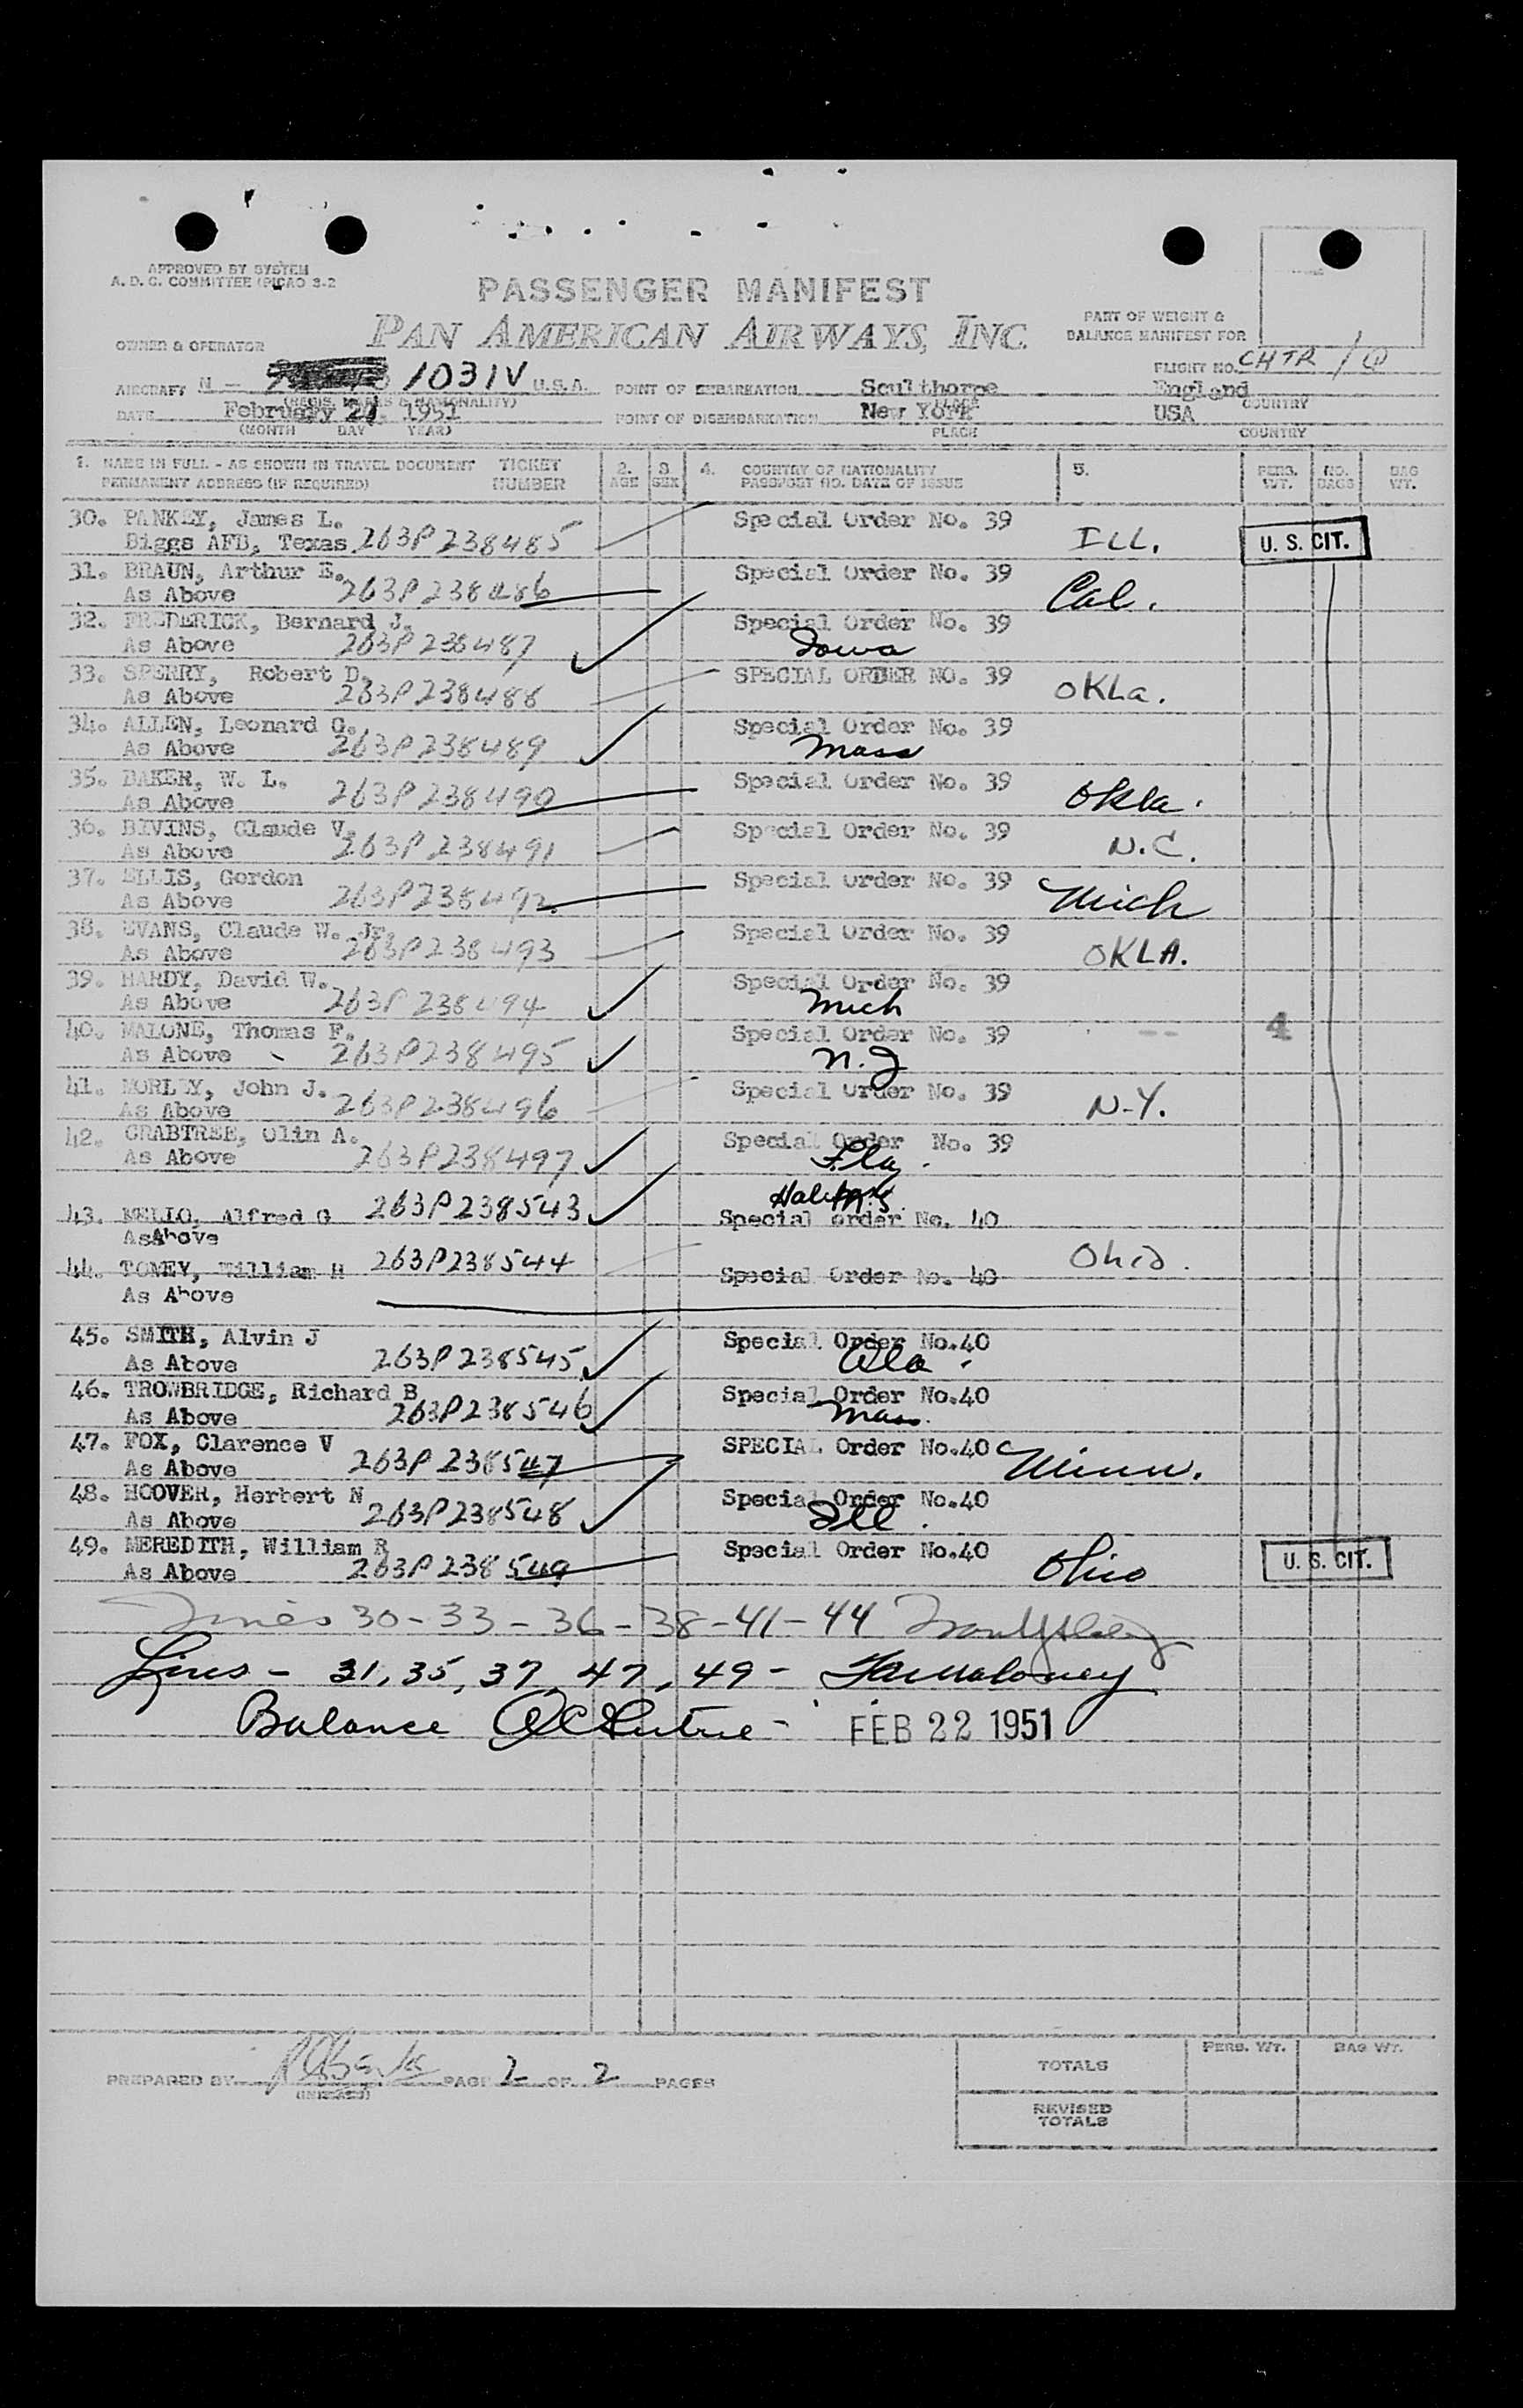 APPROVED BY SYSTEM
A. D. C. COMMITTEE (PICAO 3-2
PASSENGER MANIFEST
PAN AMERICAN AIRWAYS, INC.
PART OF WEIGHT &
BALANCE MANIFEST FOR
OWNER & OPERATOR
FLIGHT NO. CHTR
AIRCRAFT N - 1031V U.S.A. POINT OF EMBARKATION Sculthorpe England
(REGIS. MARKS & NATIONALITY) PLACE COUNTRY
DATE February 21, 1951 POINT OF DISEMBARKATION New York USA
(MONTH DAY YEAR) PLACE COUNTRY
1. NAME IN FULL - AS SHOWN IN TRAVEL DOCUMENT TICKET 2. 3. 4. COUNTRY OF NATIONALITY 5. PERS. NO. BAG
PERMANENT ADDRESS (IF REQUIRED) NUMBER AGE SEX PASSPORT NO. DATE OF ISSUE WT. BAGS WT.
30. PANKEY, James L. Special Order No. 39
Biggs AFB, Texas 263P238485 ILL. U. S. CIT.
31. BRAUN, Arthur E. Special Order No. 39
As Above 263P238486 Cal.
32. FREDERICK, Bernard J. Special Order No. 39
As Above 263P238487 Iowa
33. SPERRY, Robert D. SPECIAL ORDER NO. 39
As Above 263P238488 OKLa.
34. ALLEN, Leonard G. Special Order No. 39
As Above 263P238489 Mass
35. BAKER, W. L. Special Order No. 39
As Above 263P238490 Okla.
36. BIVINS, Claude V. Special Order No. 39
As Above 263P238491 N.C.
37. ELLIS, Gordon Special Order No. 39
As Above 263P238492 Mich
38. EVANS, Claude W. Jr. Special Order No. 39
As Above 263P238493 OKLA.
39. HARDY, David W. Special Order No. 39
As Above 263P238494 Mich
40. MALONE, Thomas F. Special Order No. 39 4
As Above 263P238495 N.J
41. MORLEY, John J. Special Order No. 39
As Above 263P238496 N-Y.
42. CRABTREE, Olin A. Special Order No. 39
As Above 263P238497 Fla.
43. MELLO, Alfred G 263P238543 Special order No. 40
AsAbove
44. TOMEY, William H 263P238544 Special Order No. 40 Ohio.
As Above
45. SMITH, Alvin J Special Order No.40
As Above 263P238545 Ala.
46. TROWBRIDGE, Richard B Special Order No.40
As Above 263P238546 Mass.
47. FOX, Clarence V SPECIAL Order No.40
As Above 263P238547 Minn.
48. HOOVER, Herbert N Special Order No.40
As Above 263P238548 Ill.
49. MEREDITH, William R Special Order No.40
As Above 263P238549 Ohio U. S. CIT.
Lines 30-33-36-38-41-44
Lines - 31, 35, 37, 47, 49 -
Balance FEB 22 1951
PREPARED BY PAGE 2 OF 2 PAGES
(INITIALS)
PERS. WT. BAG WT.
TOTALS
REVISED
TOTALS